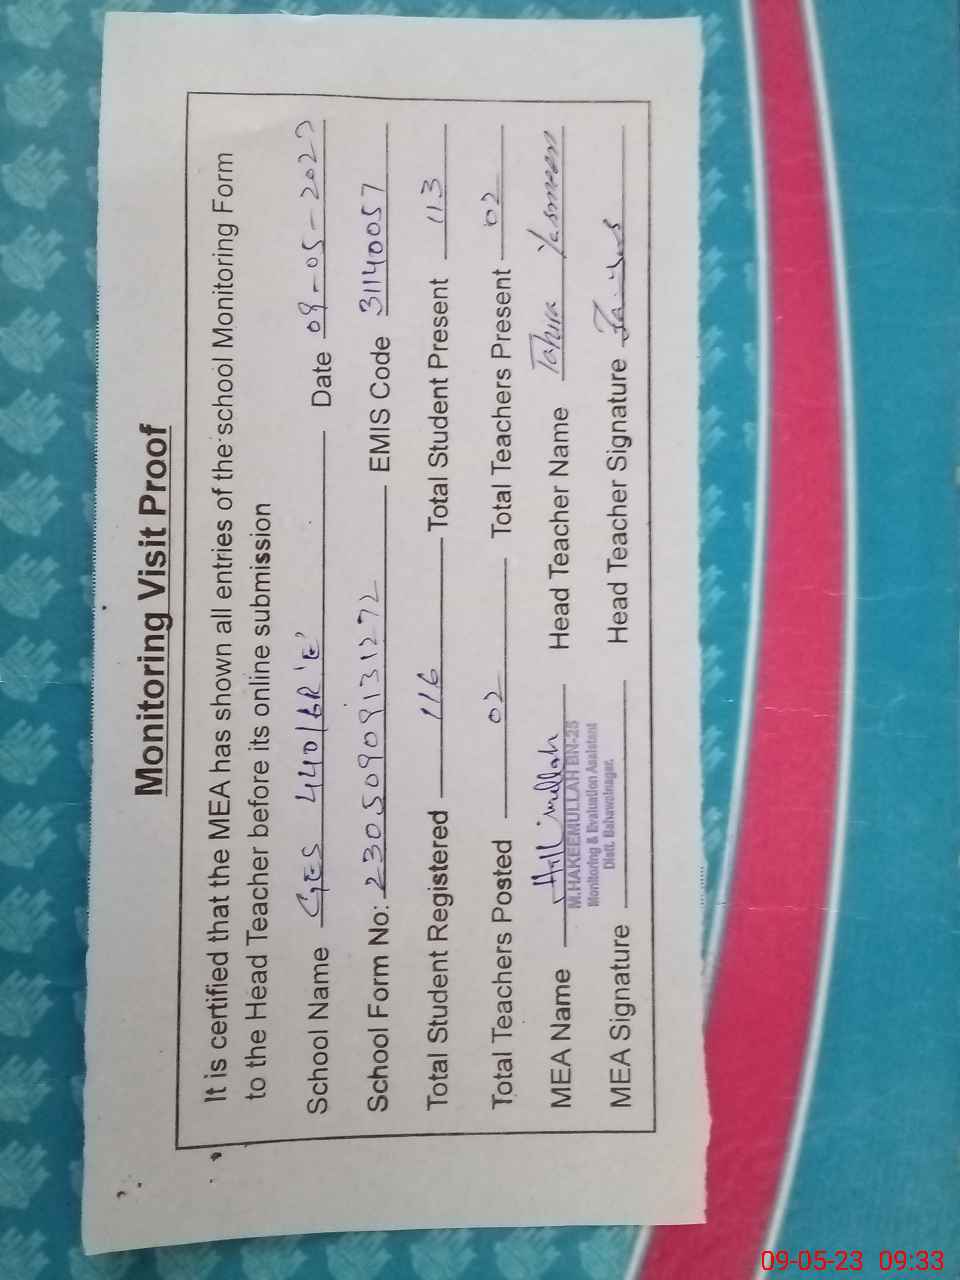 Monitoring Visit Proof
It is certified that the MEA has shown all entries of the school Monitoring Form
to the Head Teacher before its online submission
School Name GES 440/6R 'E' Date 09-05-2023
School Form No: 23050909131272 EMIS Code 31140057
Total Student Registered 116 Total Student Present 113
Total Teachers Posted 02 Total Teachers Present 02
MEA Name Head Teacher Name Tahira Yasmeen
M.HAKEEMULLAH BN-25
Monitoring & Evaluation Assistant
Distt. Bahawalnagar.
MEA Signature Head Teacher Signature
09-05-23 09:33